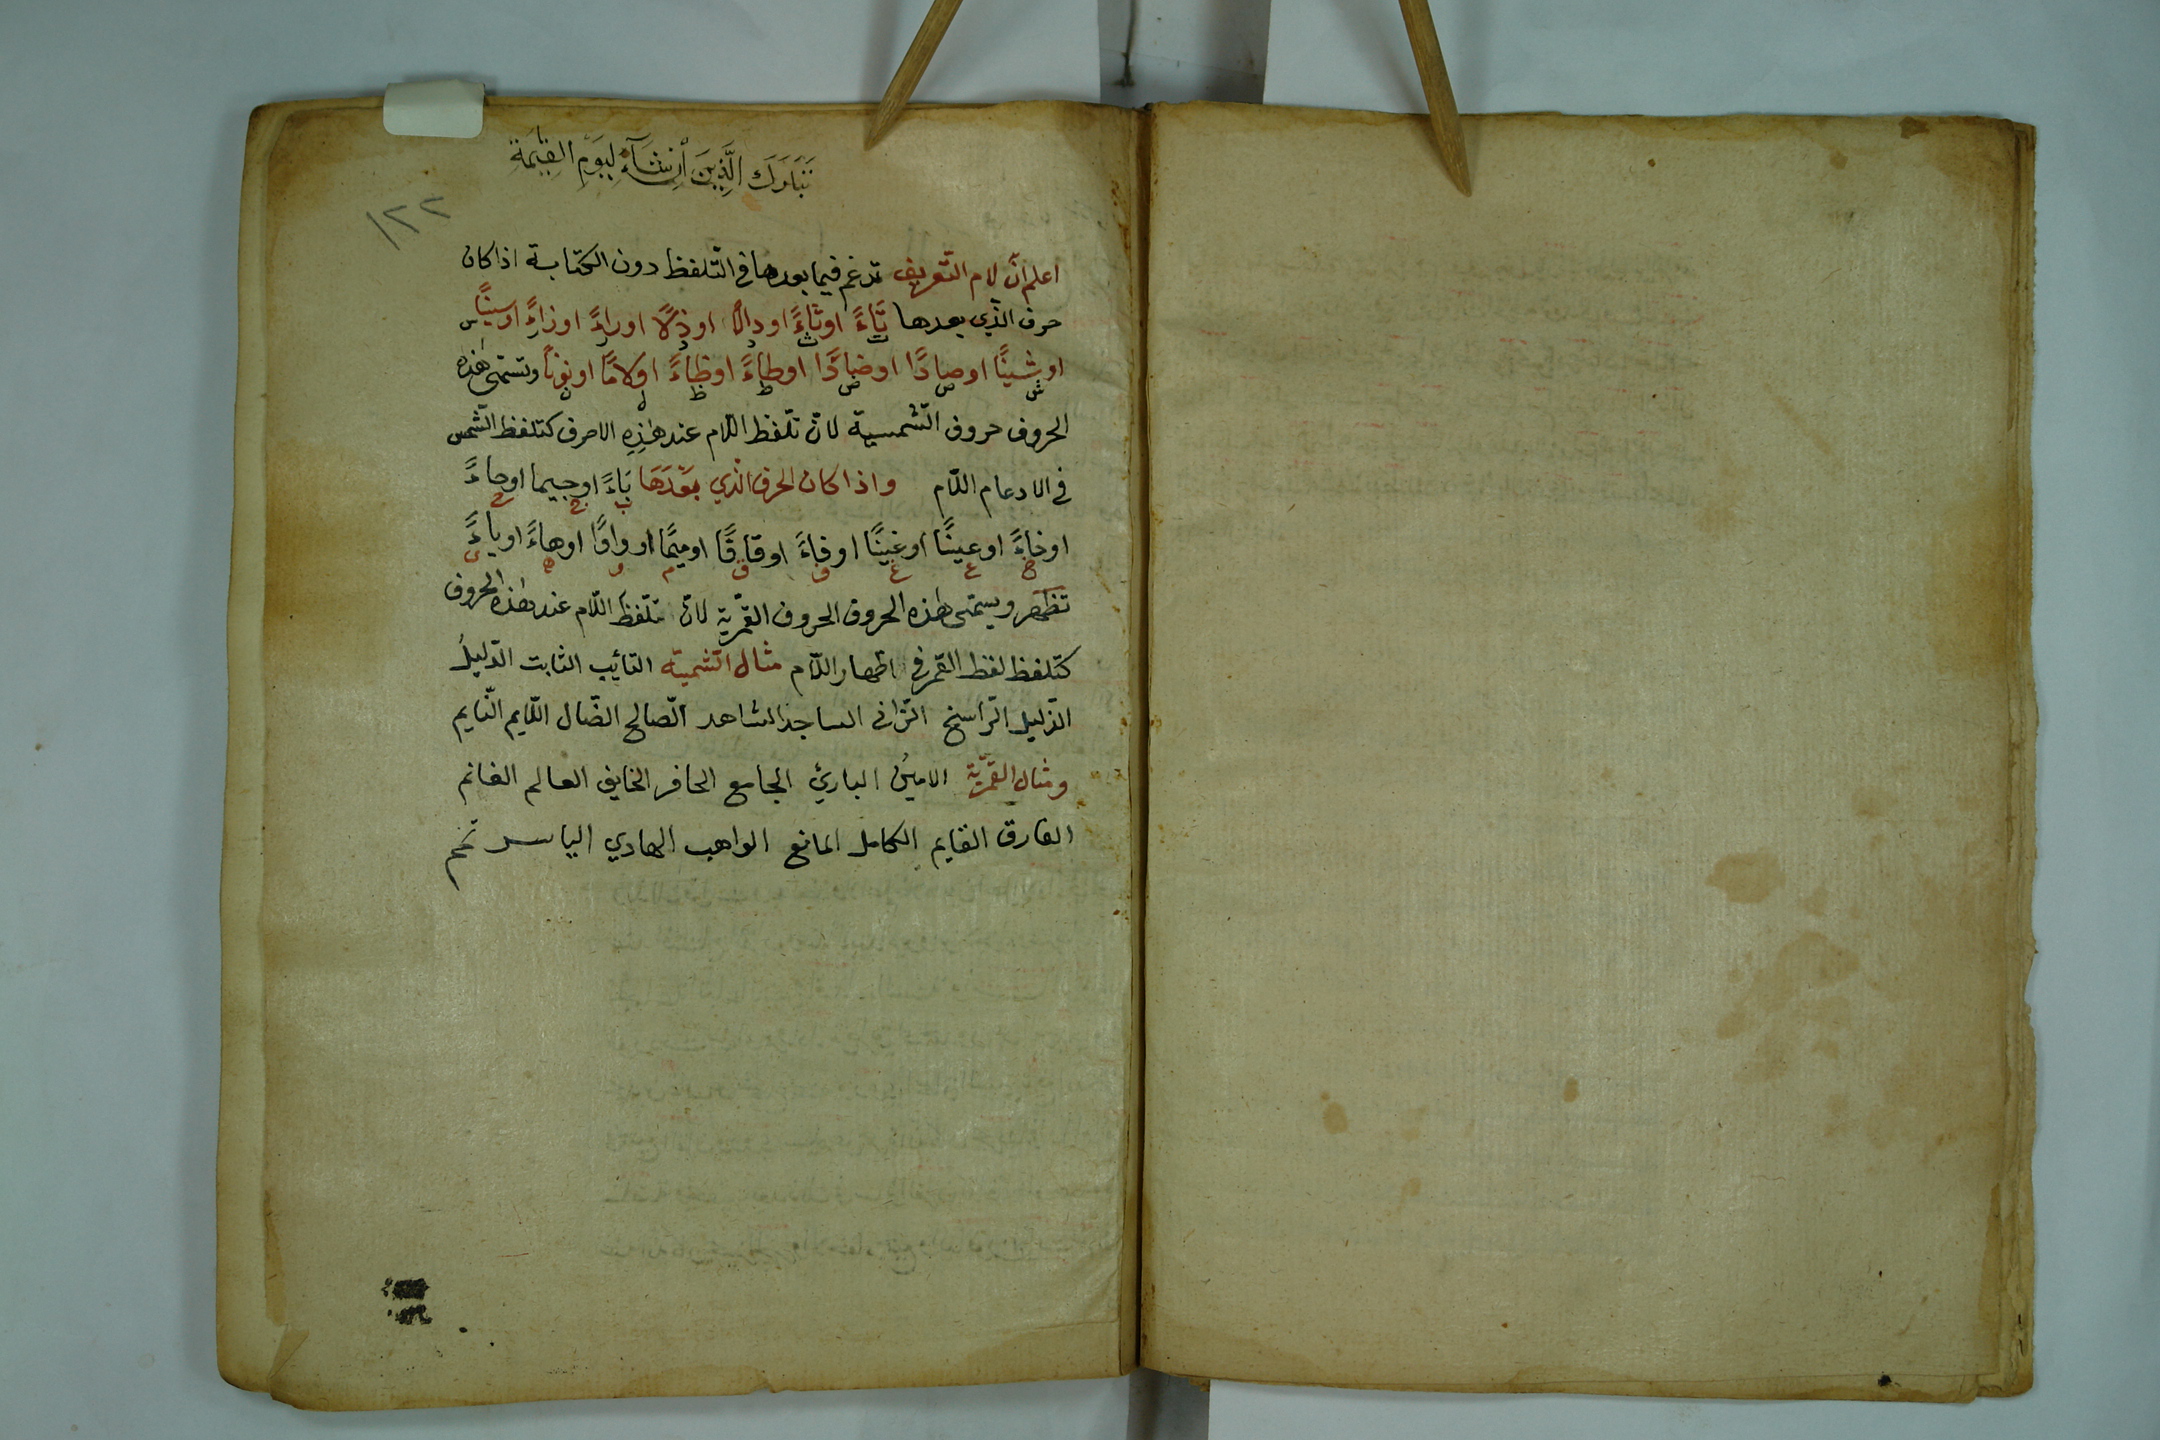 تَبَارَكَ الَّذِينَ اِنْشَآءْ لِيَوْمِ القِيٰمَةِ
١٢٢
اعلم انّ لام التّعريف تدغم فيما بعدها فى التّلفظ دون الكتابة اذا كان
حرف الّذى بعدها تَّاءً اوثاءً اودالاً اوذلاً اوراءً اوزاءً اوسينًا
ت ث د ذ ر ز س
اوشينًا اوصادًا اوضادًا اوطاءً اوظاءً اولامًا اونونًا وتسمّى هٰذه
ش ص ض ط ظ ل ن
الحروف حروف الشّمسية لانّ تلّفظ اللّام عند هٰذِهِ الاحرف كتلفظ الشّمس
فى الادعام اللّام واذا كان الحرف الّذي بَعْدَهَا بَاءً اوجيما اوحاءً
ب ج ح
اوخاءً اوعينًا اوغينًا اوفاءً اوقافًا اوميمًا اوواوًا اوهاءً اوياءً
خ ع غ ف ق م و ه ى
تظهر ويسمّى هٰذه الحروف الحروف القمّرية لانّ تلّفظ اللّام عند هٰذه الحروف
كتلفظ لفظ القمر فى اظهار اللّام مثال الشّمية التائب الثابت الدّليلُ
الذّليل الرّاسخ الزّانى الساجد الشاهد الصّالح الضّال اللّايم النّايم
ومثال القمّريّة الامينُ البارئ الجامع الحافر الخايف العالم الغانم
الفارق القايم الكامل المانع الواهب الهادي الياسر تم